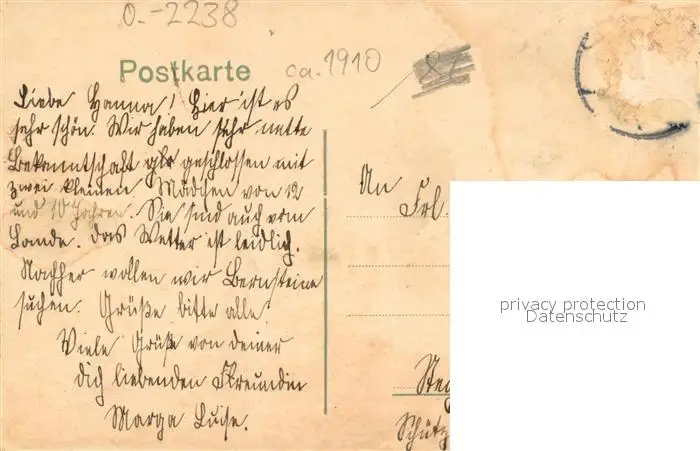 O.-2238
Postkarte
ca. 1910
Liebe Hanna! Hier ist es
sehr schön. Wir haben sehr nette
Bekanntschaft geschlossen mit
zwei kleinen Mädchen von 12
und 10 Jahren. Sie sind auch vom
Lande. Das Wetter ist leidlich.
Nachher wollen wir Bernsteine
suchen. Grüße bitte alle.
Viele Grüße von deiner
dich liebenden Freundin
Marga Luise.
An
Frl.
Steg
Schütz
privacy protection
Datenschutz